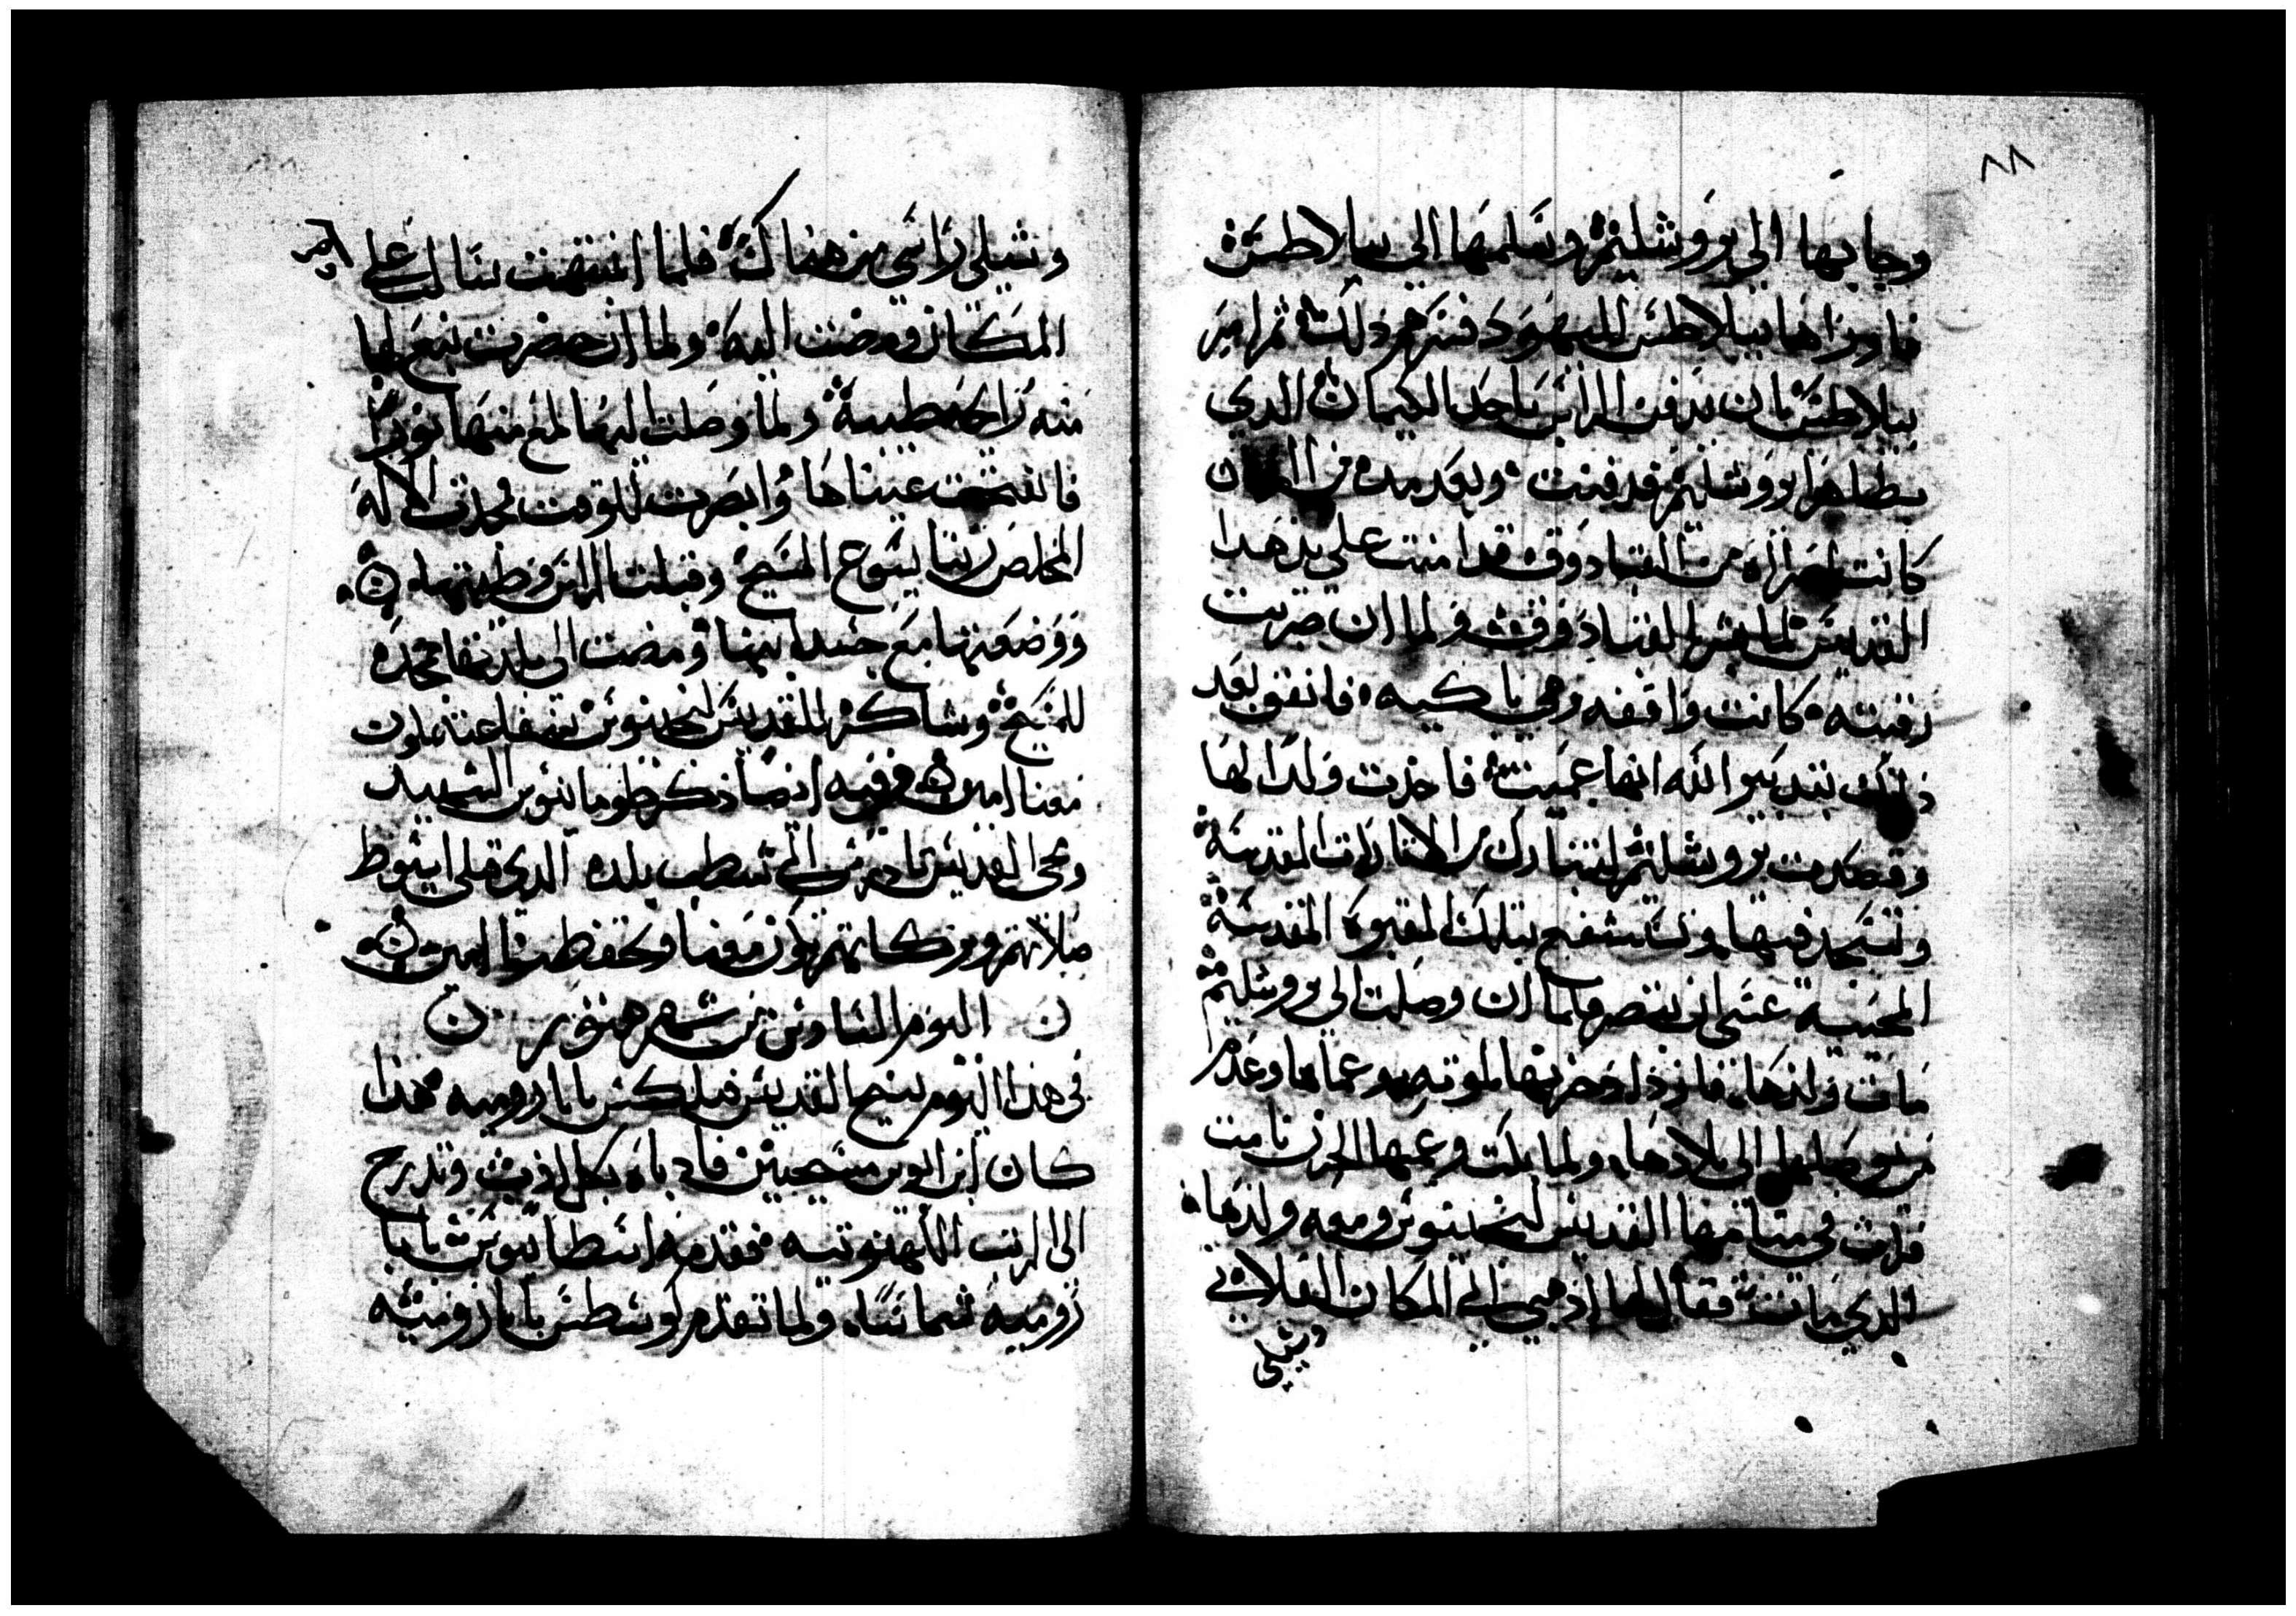 ٨٨
وجا بها الي يروشليم وسلمها الي بيلاطس
فاوراها بيلاطس لليهود فسرهم ذلك ثم امر
بيلاطس بان يدفن الراس باحد الكيمان الدي
بظاهر يروشليم فدفنت وبعد مده من
كانت امراه من القبادوق قد امنت علي يد هدا
القديس لما بشر القبادوق ولما ان ضربت
رقبته كانت واقفه وهي باكيه فاتفق بعد
ذلك بتدبير الله انها عميت فاخدت ولدا لها
وقصدت يروشليم لتتبارك من الاتارات المقدسة
وتسجد فيها وتستشفع بتلك المقبره المقدسة
المحييه عسى ان تبصر فلما ان وصلت الي يروشليم
مات ولدها فازداد حزنها لموته مع عماها وعدم
من يوصلها الي بلادها ولما بكت وعمها الحزن نامت
فرات في منامها القديس لنجينوس ومعه ولدها
الدي مات فقال لها اذهبي الي المكان الفلاني
وشيلي
وشيلي راسي من هناك فلما انتبهت سالت علي
المكان ومضت اليه ولما ان حضرت نبع لها
منه رايحه طيبة ولما وصلت اليها لمع منها نورا
فانفتحت عيناها وابصرت للوقت فمجدت الاله
المخلص ربنا يسوع المسيح وقبلت الراس وطيبتها
ووضعتها مع جسد ابنها ومضت الي بلدتها ممجده
للمسيح وشاكره للقديس لنجينوس شفاعته تكون
معنا امين وفيه ايضا ذكر طوماتيوس الشهيد
ويحي القديس تادرس الي شطب بلده الدي قبلي اسيوط
صلاتهم وبركاتهم تكون معنا وتحفظنا امين
اليوم السادس من شهر هتور
في هذا اليوم تنيح القديس فيلكس بابا روميه هذا
كان ابن ابوين مسيحيين فادباه بكل ادب وتدرج
الي الرتب الكهنوتيه فقدمه اسطاتيوس بابا
روميه شماسا ولما تقدم يوسطس بابا روميه